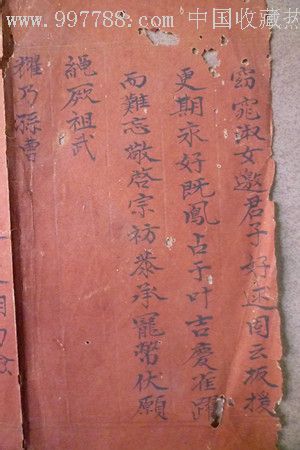 www.997788.com 中国收藏热
窈窕淑女邀君子好逑固云扳援
更期永好既鳳占于叶吉慶雀躍
而難忘敬啓宗祊恭承寵幣伏願
繩厥祖武
耀乃孫曹